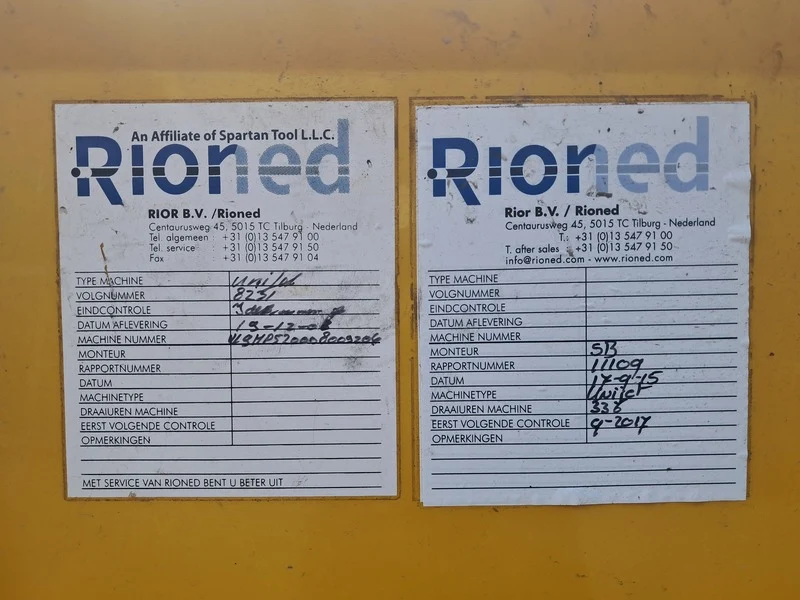 An Affiliate of Spartan Tool L.L.C.
Rioned
RIOR B.V. /Rioned
Centaurusweg 45, 5015 TC Tilburg - Nederland
Tel. algemeen : +31 (0)13 547 91 00
Tel. service : +31 (0)13 547 91 50
Fax : +31 (0)13 547 91 04
TYPE MACHINE
VOLGNUMMER 8231
EINDCONTROLE
DATUM AFLEVERING 19-12-06
MACHINE NUMMER
MONTEUR
RAPPORTNUMMER
DATUM
MACHINETYPE
DRAAIUREN MACHINE
EERST VOLGENDE CONTROLE
OPMERKINGEN
MET SERVICE VAN RIONED BENT U BETER UIT
Rioned
Rior B.V. / Rioned
Centaurusweg 45, 5015 TC Tilburg - Nederland
T. : +31 (0)13 547 91 00
T. after sales : +31 (0)13 547 91 50
info@rioned.com - www.rioned.com
TYPE MACHINE
VOLGNUMMER
EINDCONTROLE
DATUM AFLEVERING
MACHINE NUMMER
MONTEUR SB
RAPPORTNUMMER 11109
DATUM 17-9-15
MACHINETYPE Unijet
DRAAIUREN MACHINE 338
EERST VOLGENDE CONTROLE 9-2017
OPMERKINGEN